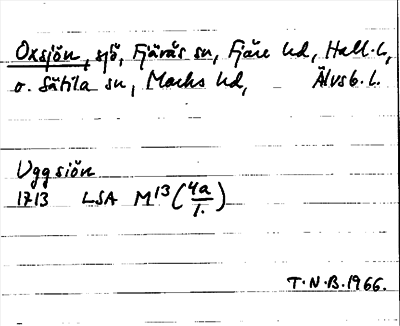 Oxsjön, sjö, Fjärås sn, Fjäre hd, Hall. l.,
o. Sätila sn, Marks hd, Älvsb. l.
Uggsiön
1713 LSA M13 (4a/1.)
T.N.B. 1966.